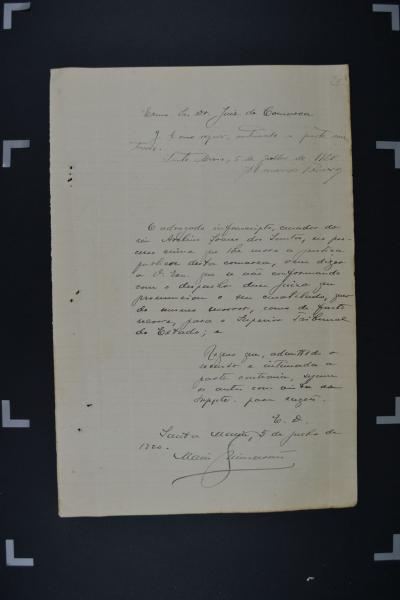 Exmo Sr. Dr. Juiz da Comarca
J. Como requer, intimada a parte con
traria.
Santa Maria, 5 de julho de 1920.
O advogado infrascripto, curador do
réo Avelino Soares dos Santos, no pro
cesso crime que lhe move a justiça
publica desta comarca, vem dizer
a V. Exa. que se não conformando
com o despacho desse juizo que
pronunciou o seu curatelado, quer
do mesmo recorrer, como de facto
recorre, para o Superior Tribunal
do Estado; e
Requer que, admittido o
recurso e intimada a
parte contraria, sejam
os autos com vista ao
supte. para razões.
E. D.
Santa Maria, 5 de julho de
1920.